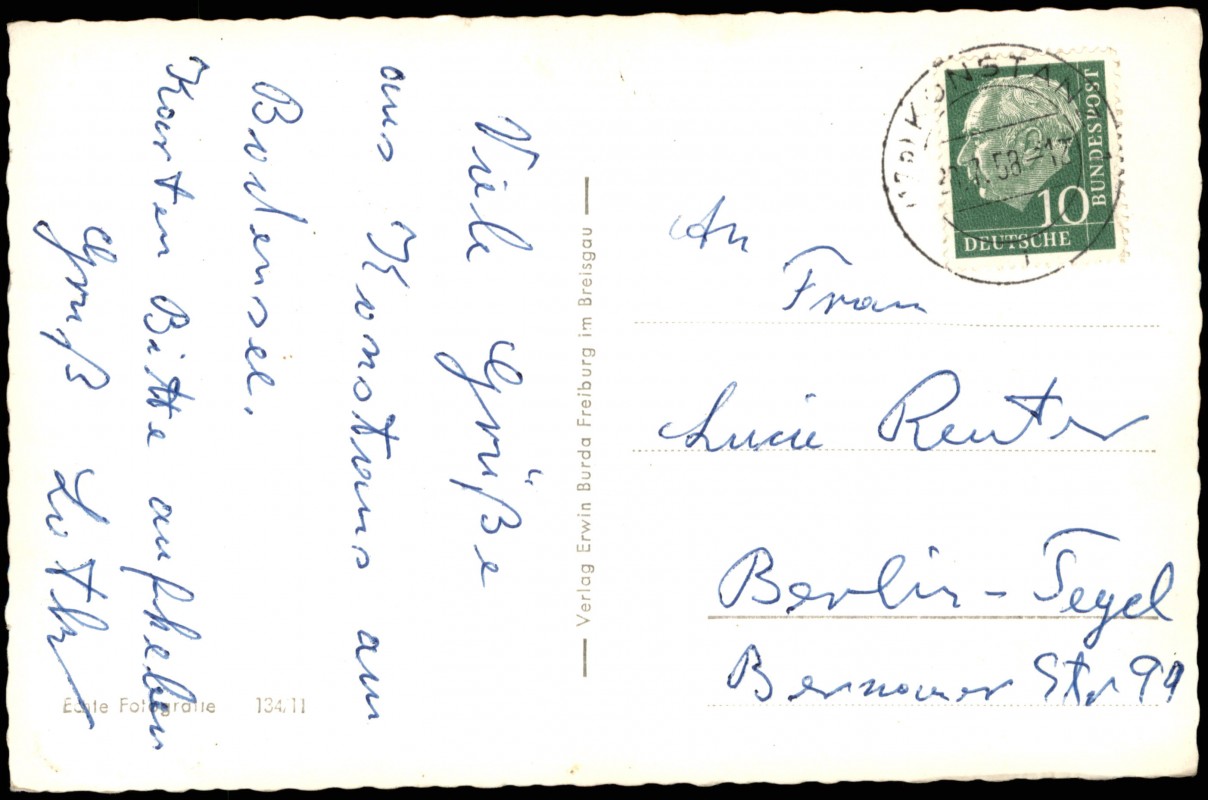 Viele Grüße
aus Konstans am
Bodensee.
Karten Bitte aufheben
Gruß Lothar
Verlag Erwin Burda Freiburg im Breisgau
Echte Fotografie 134/11
KONSTAN
58-17
10
DEUTSCHE
BUNDESPOST
An
Frau
Lucie Reuter
Berlin-Tegel
Bernauer Str 99